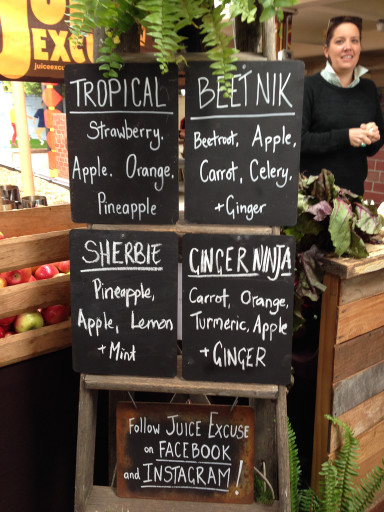 JU
EXCU
juiceexcu
TROPICAL
Strawberry.
Apple. Orange.
Pineapple
BEETNIK
Beetroot, Apple,
Carrot, Celery.
+ Ginger
SHERBIE
Pineapple,
Apple, Lemon
+ Mint
GINGER NINJA
Carrot, Orange,
Turmeric, Apple
+ GINGER
Follow JUICE EXCUSE
on FACEBOOK
and INSTAGRAM!